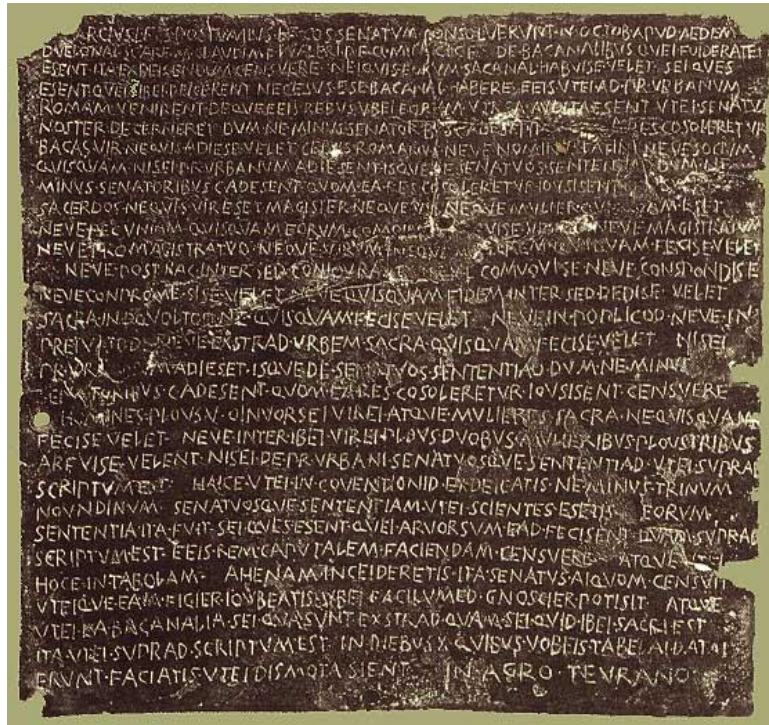 COS SENATVM CONSOLVERVNT N OCTOB APVD AEDEM
DVELONAI SC ARF M CLAVDI M F L VALERI P F Q MINVCI C F DE BACANALIBVS QVEI FOIDERATEI
ESENT ITA EXDEICENDVM CENSVERE NEIQVIS EORVM BACANAL HABVISE VELET SEI QVES
ESENT QVEI SIBEI DEICERENT NECESVS ESE BACANAL HABERE EEIS VTEI AD PR VRBANVM
ROMAM VENIRENT DEQVE EEIS REBVS VBEI EORVM AVDITA ESENT VTEI SENATVS
NOSTER DECERNERET DVM NE MINVS SENATORIBVS C ADESENT COSOLERETVR
BACAS VIR NEQVIS ADIESE VELET CEIVIS ROMANVS NEVE NOMINVS LATINI NEVE SOCIVM
QVISQVAM NISEI PR VRBANVM ADIESENT ISQVE DE SENATVOS SENTENTIAD DVM NE
MINVS SENATORIBVS C ADESENT QVOM EA RES COSOLERETVR IOVSISENT
SACERDOS NEQVIS VIR ESET MAGISTER NEQVE VIR NEQVE MVLIER QVISQVAM ESET
NEVE PECVNIAM QVISQVAM EORVM NEVE MAGISTRATVM
NEVE PRO MAGISTRATVO NEQVE VIRVM NEQVE QVIQVAM FECISE VELET
NEVE POST HAC INTER SED CONIOVRASE NEVE COMVOVISE NEVE CONSPONDISE
NEVE CONPROMESISE VELET NEVE QVISQVAM FIDEM INTER SED DEDISE VELET
SACRA IN DQVOLTOD NE QVISQVAM FECISE VELET NEVE IN POPLICOD NEVE IN
PREIVATOD NEVE EXSTRAD VRBEM SACRA QVISQVAM FECISE VELET NISEI
PR VRBANVM ADIESET ISQVE DE SENATVOS SENTENTIAD DVM NE MINVS
SENATORIBVS C ADESENT QVOM EA RES COSOLERETVR IOVSISENT CENSVERE
HOMINES PLOVS V OINVORSEI VIREI ATQVE MVLIERES SACRA NE QVISQVAM
FECISE VELET NEVE INTER IBEI VIREI PLOVS DVOBVS MVLIERIBVS PLOVS TRIBVS
ARFVISE VELENT NISEI DE PR VRBANI SENATVOSQVE SENTENTIAD VTEI SVPRAD
SCRIPTVM EST HAICE VTEI IN COVENTIONID EXDEICATIS NE MINVS TRINVM
NOVNDINVM SENATVOSQVE SENTENTIAM VTEI SCIENTES ESETIS EORVM
SENTENTIA ITA FVIT SEI QVES ESENT QVEI ARVORSVM EAD FECISENT QVAM SVPRAD
SCRIPTVM EST EEIS REM CAPVTALEM FACIENDAM CENSVERE ATQVE VTEI
HOCE IN TABOLAM AHENAM INCEIDERETIS ITA SENATVS AIQVOM CENSVIT
VTEIQVE EAM FIGIER IOVBEATIS VBEI FACILVMED GNOSCIER POTISIT ATQVE
VTEI EA BACANALIA SEI QVA SVNT EXSTRAD QVAM SEI QVID IBEI SACRI EST
ITA VTEI SVPRAD SCRIPTVM EST IN DIEBVS X QVIBVS VOBEIS TABELAI DATAI
ERVNT FACIATIS VTEI DISMOTA SIENT IN AGRO TEVRANO